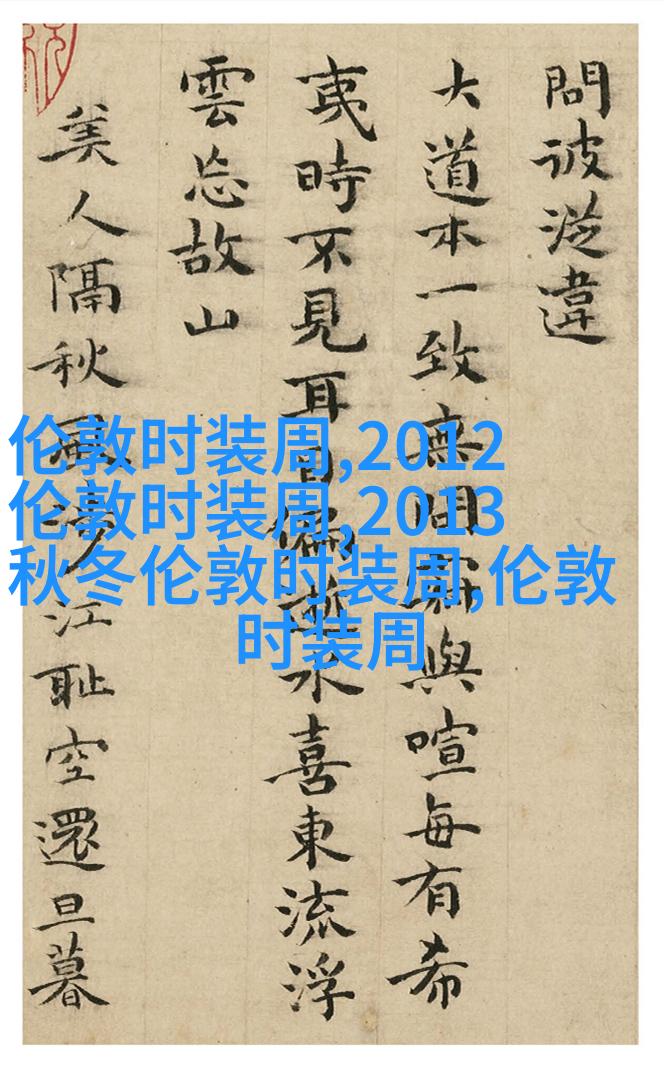 問彼從違
大道本一致無間與喧每有希
夷時不見耳目偏水喜東流浮
雲忘故山
美人隔秋風涉江耻空還旦暮
伦敦时装周,2012
伦敦时装周,2013
秋冬伦敦时装周,伦敦
时装周